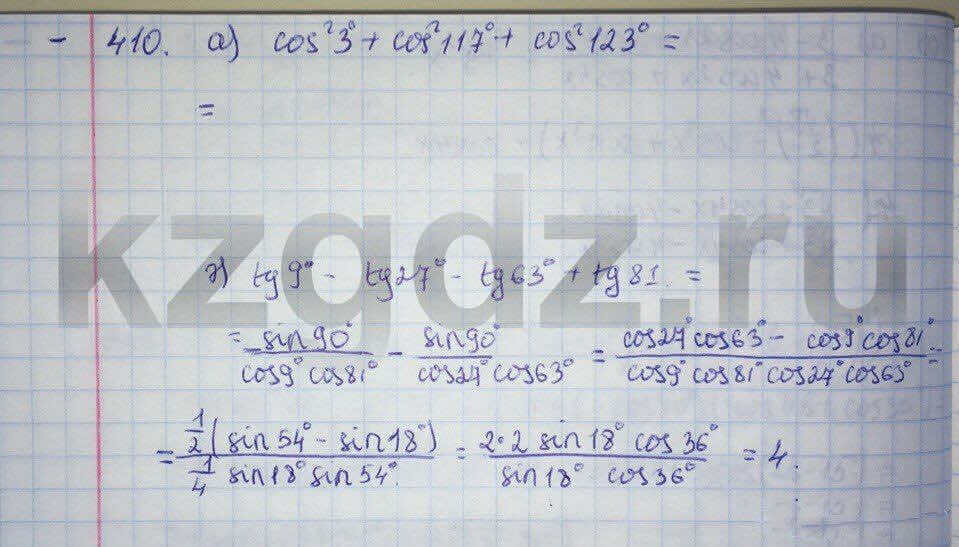 - 410. а) cos²3° + cos²117° + cos²123° =
=
kzgdz.ru
г) tg9° - tg27° - tg63° + tg81. =
= sin90° / cos9° cos81° - sin90° / cos27° cos63° = cos27° cos63° - cos9° cos81° / cos9° cos81° cos27° cos63° =
= 1/2 (sin54° - sin18°) / 1/4 sin18° sin54° = 2·2 sin18° cos36° / sin18° cos36° = 4.